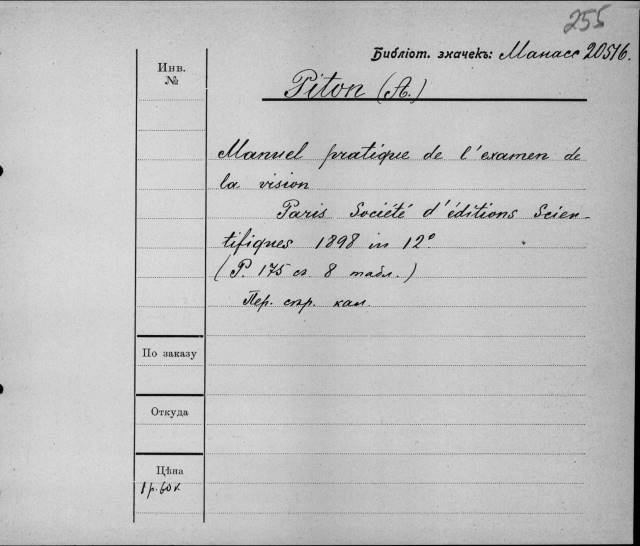 255
Библіот. значекъ: Манасс 20516.
Инв.
№
Piton (A.)
Manuel pratique de l'examen de
la vision
Paris Société d'éditions Scien-
tifiques 1898 in 12°
(P. 175 съ 8 табл.)
Пер. сър. кал.
По заказу
Откуда
Цѣна
1 р. 60 к